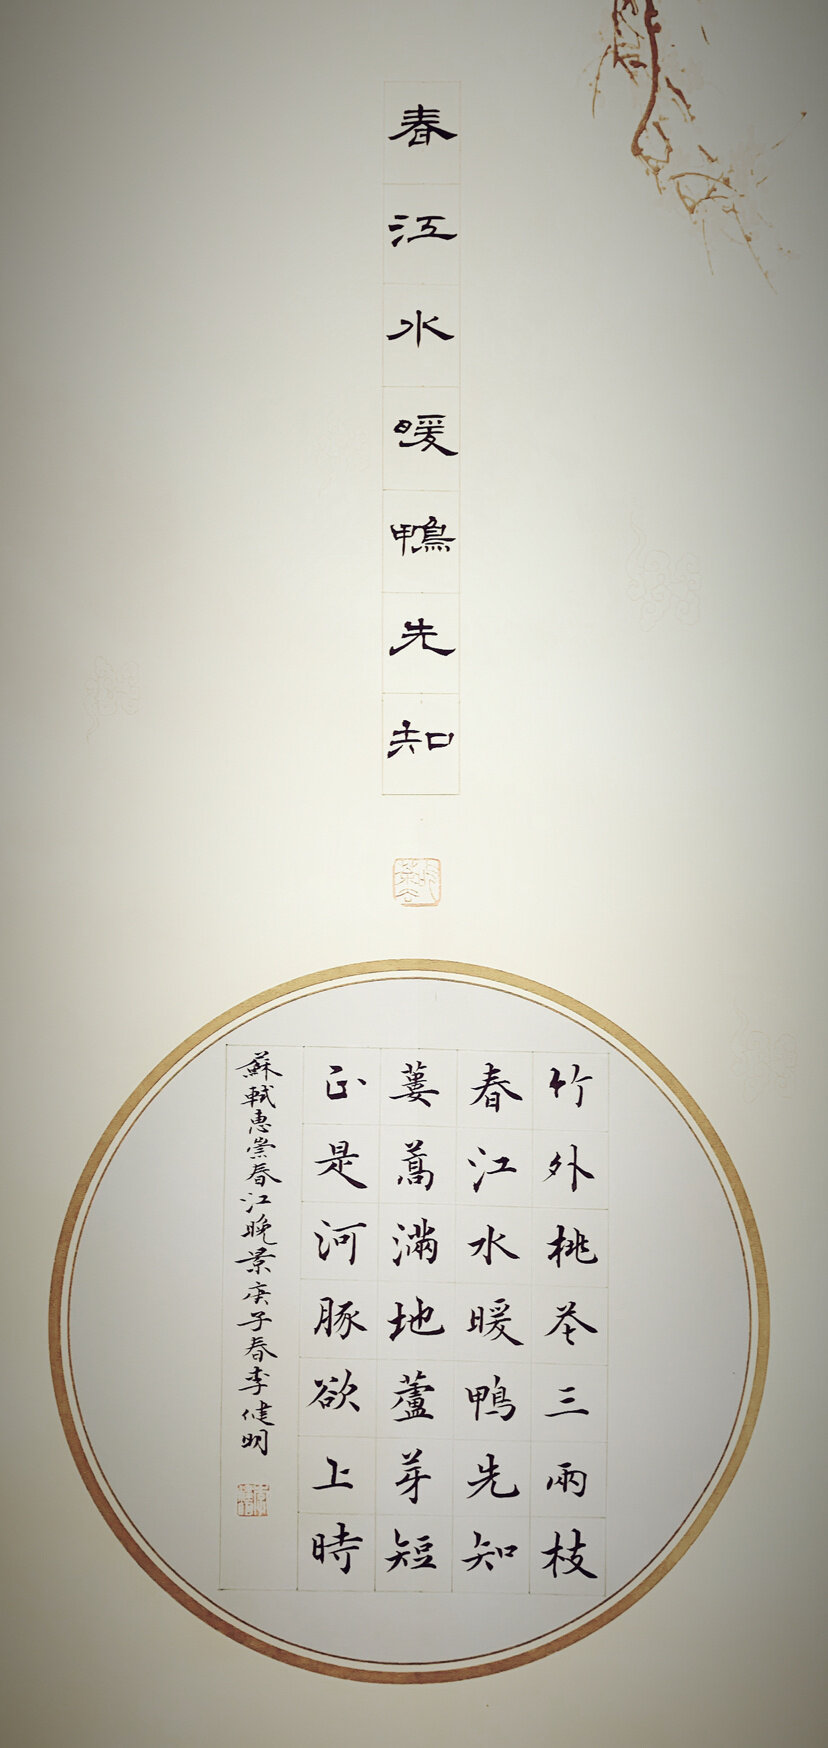 春江水暖鴨先知
竹外桃花三兩枝
春江水暖鴨先知
蔞蒿滿地蘆芽短
正是河豚欲上時
蘇軾惠崇春江晚景庚子春李健明